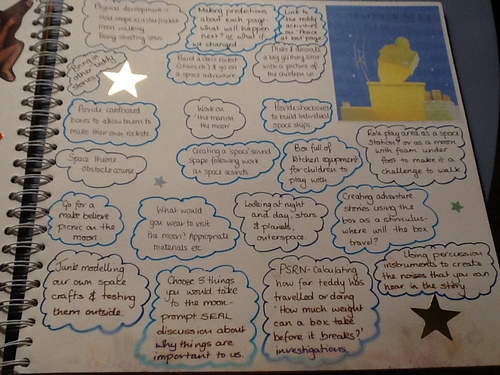 Physical development -
How should astronauts
Moon walking
Making predictions
about each page.
What will happen
next? or what if
we changed
Link to
the teddy
activities
on 'Peace
at last' page
Bring in
other teddy
stories
Build a class rocket
(Church?) & go on
a space adventure
There I decorate
a big glittery star
with a picture of
the children in
Provide cardboard
boxes to allow them to
make their own rockets
Work on
'the man in
the moon'
Provide shoeboxes
to build individual
space ships.
Role play area as a space
station? or as a moon
with foam under
foot to make it a
challenge to walk
Space theme
obstacle course
Creating a space sound
scape following work
on space sounds
Box full of
kitchen equipment
for children to
play with
Go for a
make believe
picnic on the
moon.
What would
you wear to visit
the moon? Appropriate
materials etc
Looking at night
and day, stars
& planets,
outerspace
Creating adventure
stories using the
box as a stimulus-
where will the box
travel?
Junk modelling
our own space
crafts & testing
them outside.
Choose 3 things
you would take
to the moon-
prompt SEAL
discussion about
why things are
important to us.
PSRN-Calculating
how far teddy has
travelled or doing
'How much weight
can a box take
before it breaks?'
investigations.
Using percussion
instruments to create
the noises that you can
hear in the story